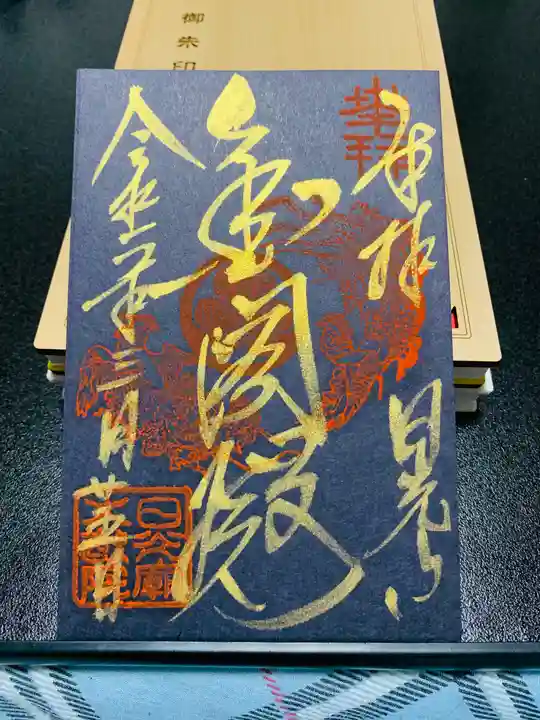 御朱印
奉拝
奉拝 日光山
金閣殿
令和
年三月廿五日
日光廟